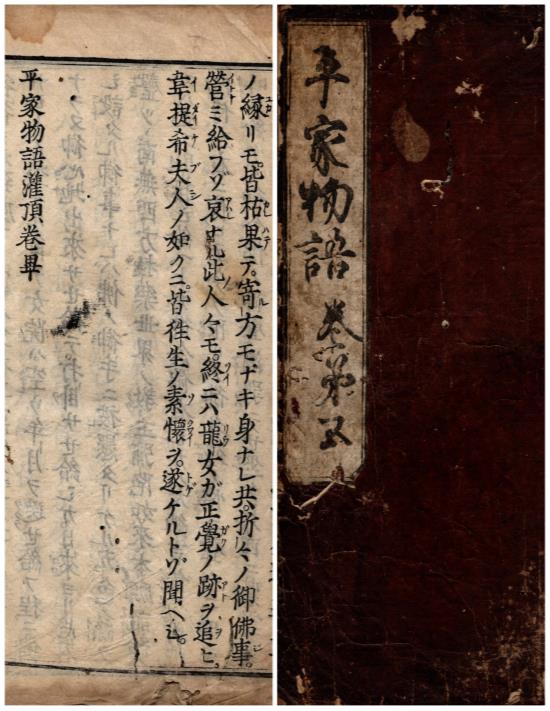 ノ縁リモ。皆枯果テ。寄方モナキ身ナレ共。折々ノ御佛事。
營ミ給フゾ哀ナル。此人々モ。終ニハ龍女ガ正覺ノ跡ヲ追ヒ。
韋提希夫人ノ如クニ。皆往生ノ素懷ヲ。遂ケルトゾ聞ヘシ。
平家物語灌頂卷畢
平家物語 卷第五